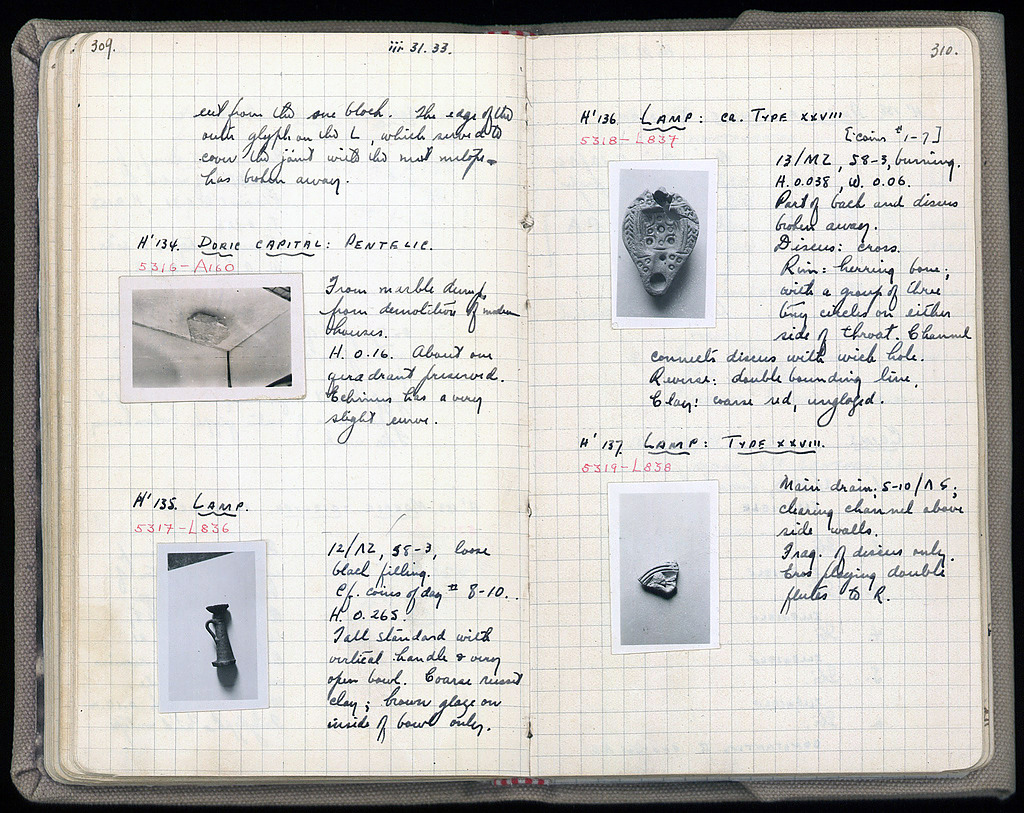 309.
iii 31. 33.
cut from the one block. The edge of the
outer glyph on the L, which served to
cover the joint with the next metope
has broken away.
H' 134. DORIC CAPITAL: PENTELIC.
5316-A160
From marble dump,
from demolition of modern
houses.
H. 0.16. About one
quadrant preserved.
Echinus has a very
slight curve.
H' 135. LAMP.
5317-L836
12/ΛΖ, 58-3, loose
black filling.
Cf. coins of day # 8-10.
H. 0.265.
Tall standard with
vertical handle & very
open bowl. Coarse russet
clay; brown glaze on
inside of bowl only.
310.
H' 136. LAMP: ca. TYPE XXVIII
[coins # 1-7]
5318-L837
13/ΜΖ, 58-3, burning.
H. 0.038, W. 0.06.
Part of back and discus
broken away.
Discus: cross.
Rim: herring bone;
with a group of three
tiny circles on either
side of throat. Channel
connects discus with wick hole.
Reverse: double bounding line.
Clay: coarse red, unglazed.
H' 137. LAMP: TYPE XXVIII.
5319-L838
Main drain; 5-10/ΛϚ;
clearing channel above
side walls.
Frag. of discus only.
Eros playing double
flutes to R.